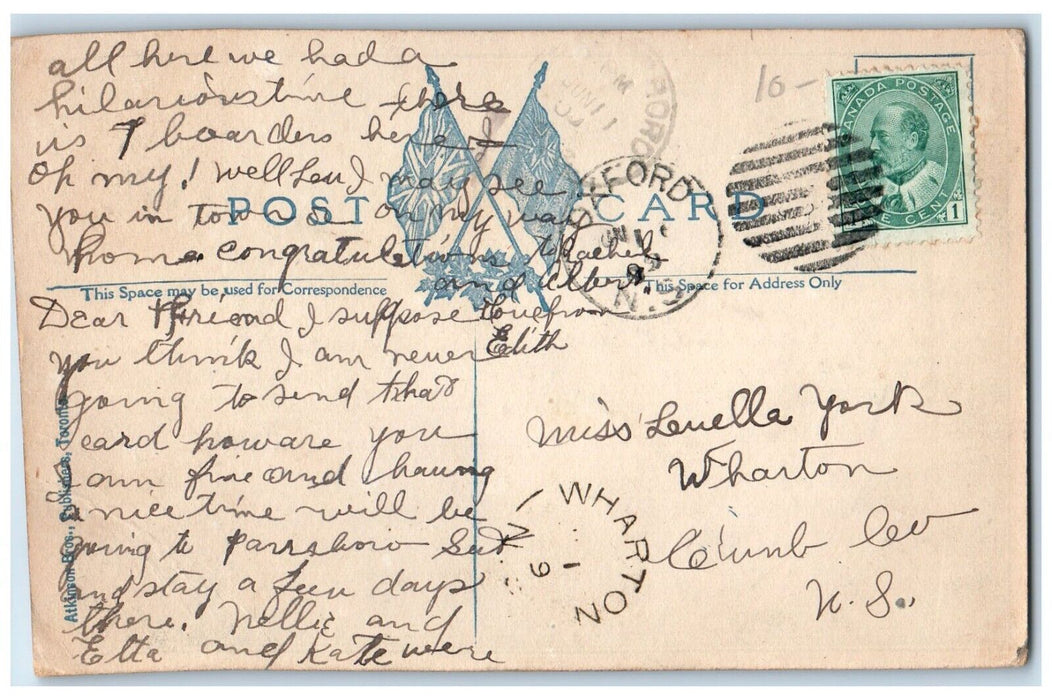 all here we had a
hilarious time there
is 7 boarders here
Oh my! Well Leu I may see
you in town on my way
home. congratulations
and Albert.
POST CARD
CANADA POSTAGE
ONE CENT
1
10-
OXFORD
N.S.
This Space may be used for Correspondence
This Space for Address Only
Dear Friend I suppose
you think I am never
going to send that
card how are you
I am fine and having
a nice time will be
going to Parrsboro Sat
and stay a few days
there. Nellie and
Etta and Kate were
Love from
Edith
Miss Leuella York
Wharton
Cumb Co
N. S.
WHARTON
Atkinson Bros., Publishers, Toronto